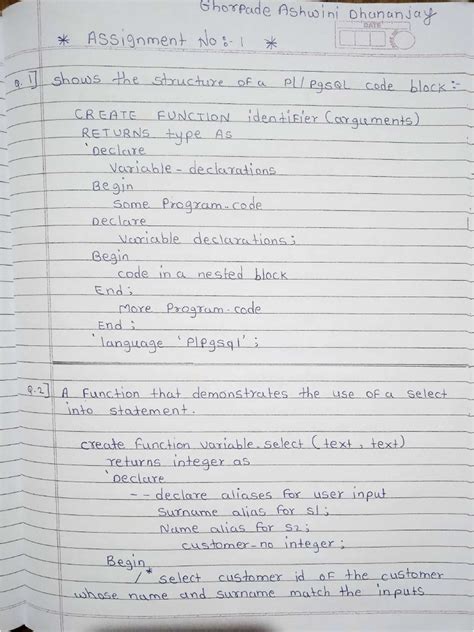 Ghorpade Ashwini Dhananjay
* Assignment No:-1 *
DATE
Q.1] Shows the structure of a Pl/PgSQL code block:-
CREATE FUNCTION identifier (arguments)
RETURNS type As
'Declare
Variable-declarations
Begin
Some Program-code
Declare
Variable declarations;
Begin
code in a nested block
End;
More Program-code
End;
'language 'PlPgsql';
Q.2] A function that demonstrates the use of a select
into statement.
create function variable-select (text, text)
returns integer as
'Declare
-- declare aliases for user input
Surname alias for s1;
Name alias for s2;
customer-no integer;
Begin
/* select customer id of the customer
whose name and surname match the inputs